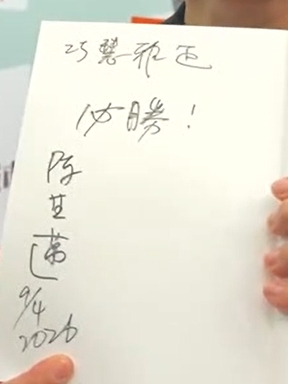 巧慧雅
必勝！
陳
其
邁
9/4
2026